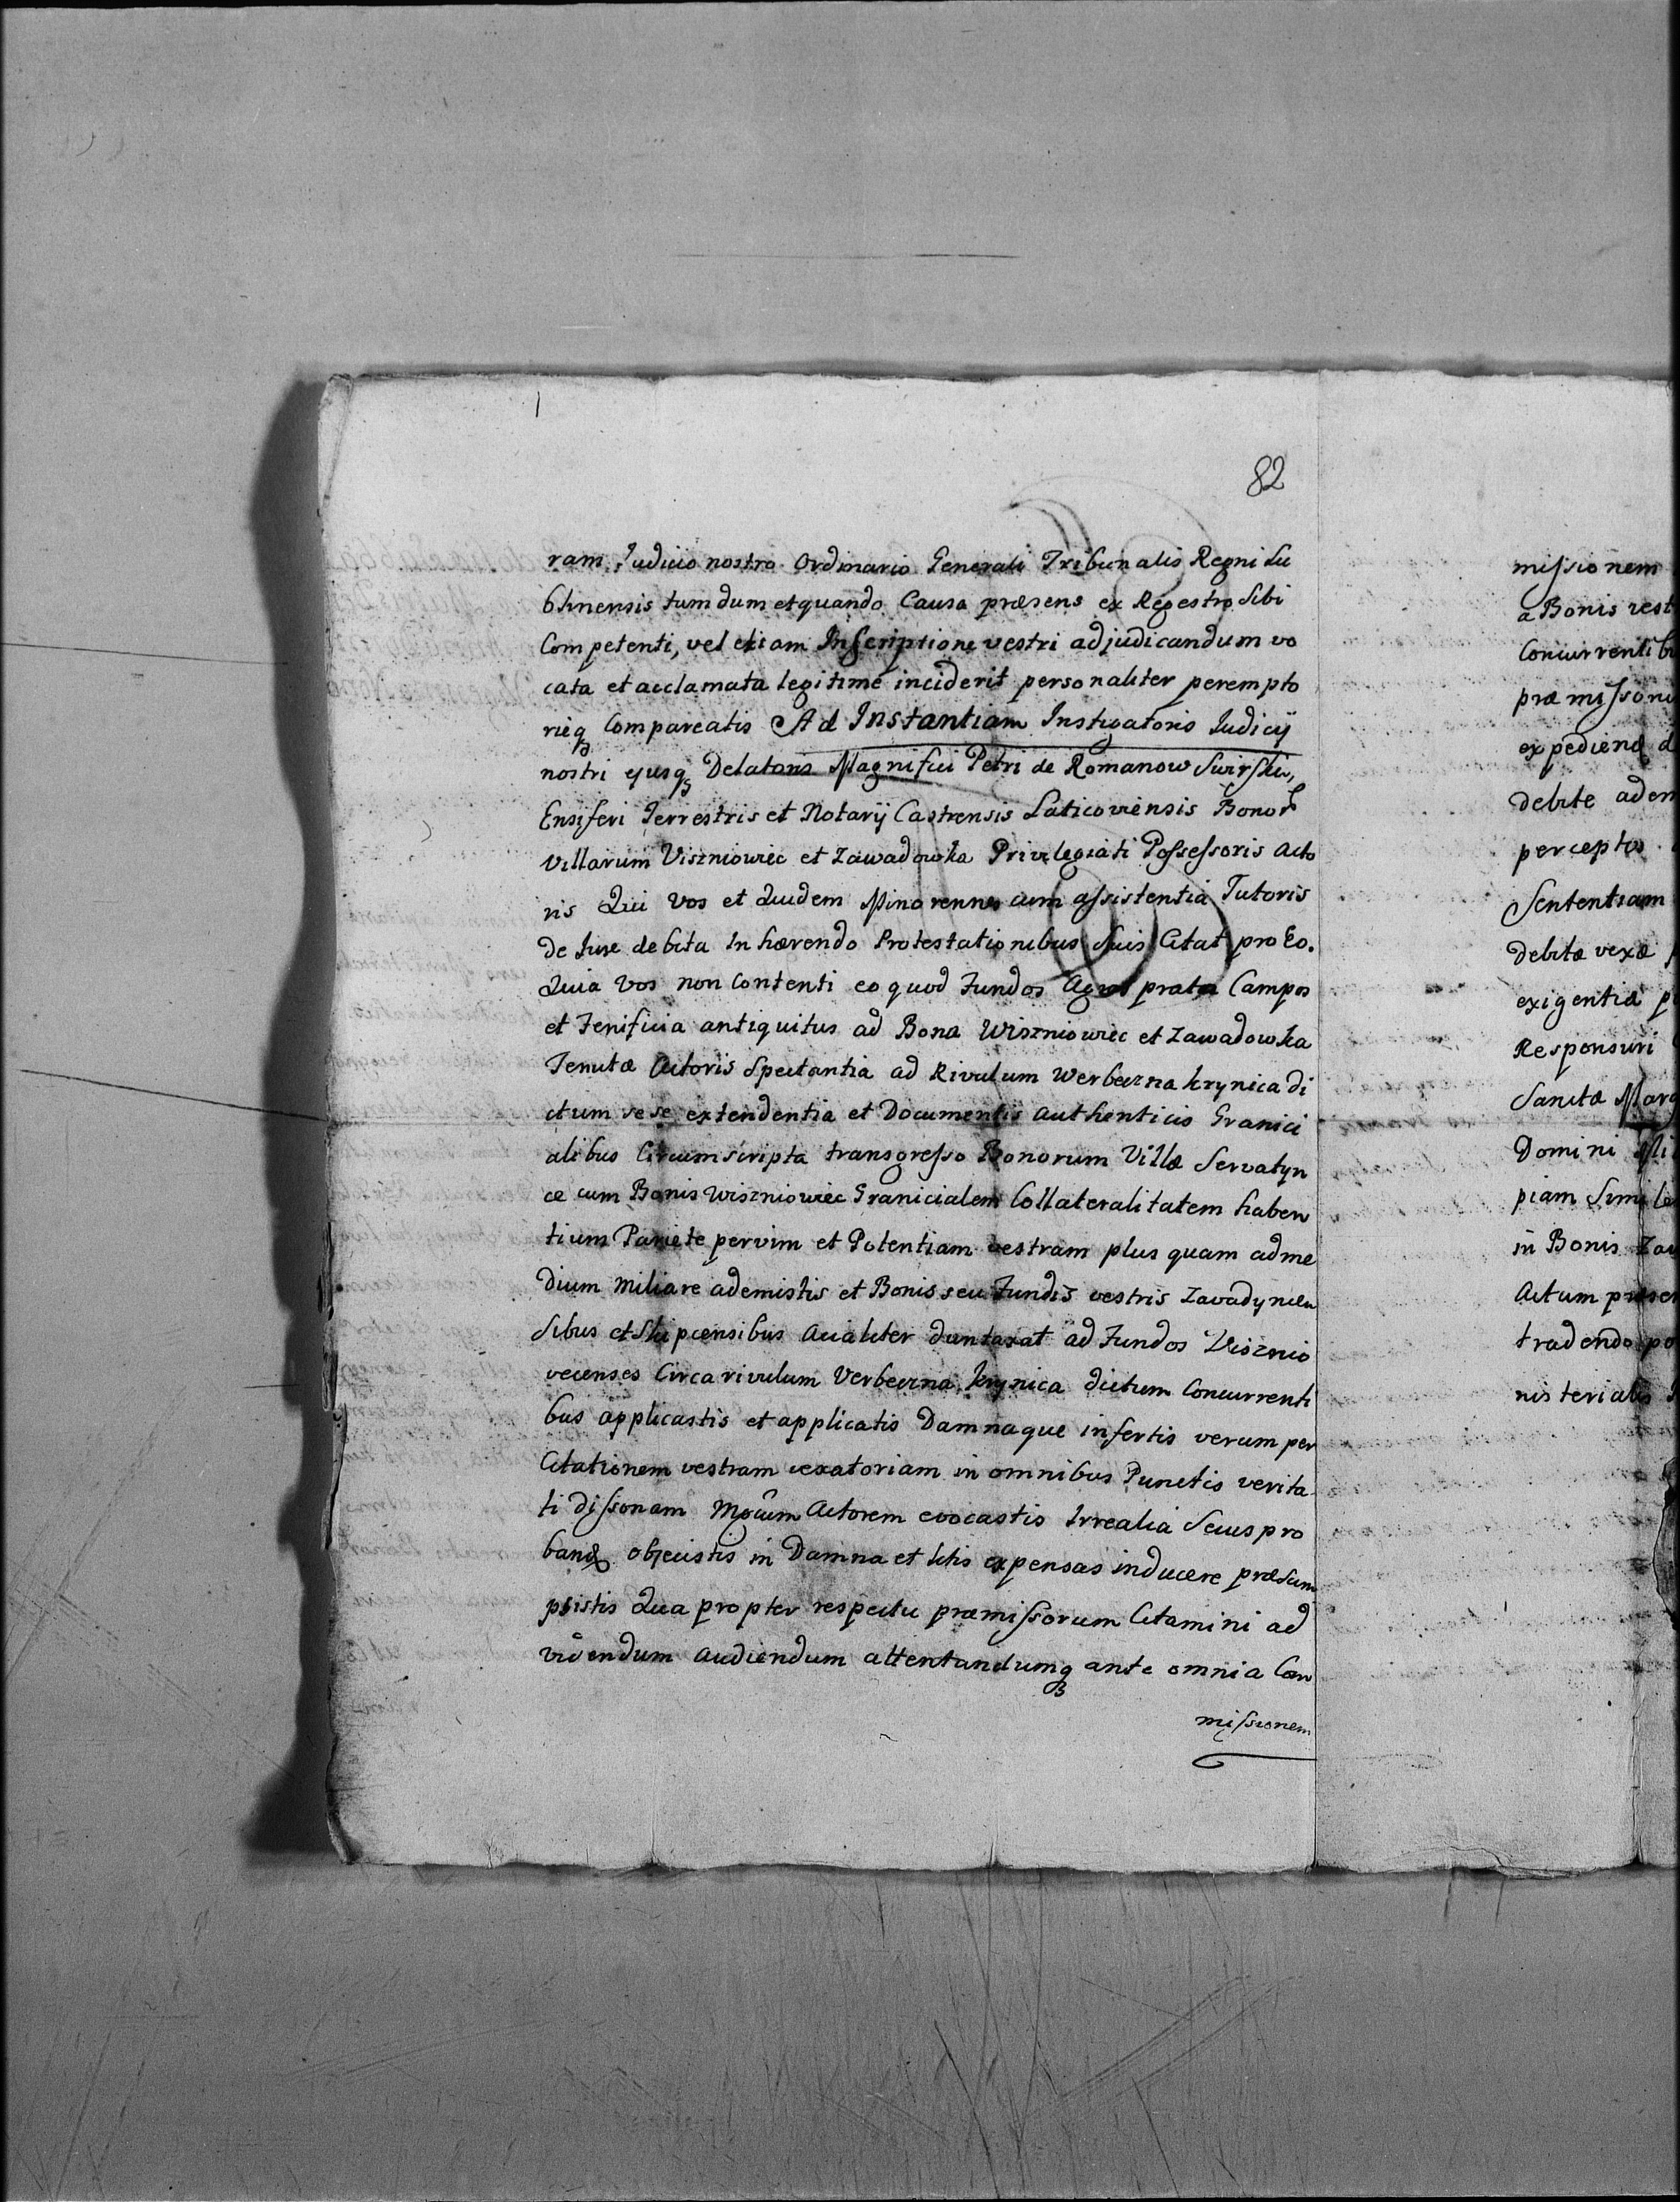 82
ram Judicio nostro Ordinario Generali Tribunalis Regni Lu
blinensis tum dum et quando Causa præsens ex Regestro sibi
Competenti, vel etiam Inscriptione vestri adjudicandum vo
cata et acclamata legitime inciderit personaliter perempto
rieq Compareatis Ad Instantiam Instigatoris Judicij
nostri ejusq Delatoris Magnifici Petri de Romanow Swirski,
Ensiferi Terrestris et Notarij Castrensis Laticoviensis Bonor
Villarum Viszniowiec et Zawadowka Privilegiati Possessoris Acto
ris Qui vos et quidem Minorennes cum assistentia Tutoris
de Jure debita Inhærendo Protestationibus suis Citat pro Eo.
Quia vos non Contenti eo quod Fundos Agros prata Campos
et Fenificia antiquitus ad Bona Wiszniowiec et Zawadowka
Tenutæ Actoris Spectantia ad Rivulum Werbeczna krynica di
ctum sese extendentia et Documentis authenticis Granici
alibus Circumscripta transgresso Bonorum Villæ Servatyn
ce cum Bonis Wiszniowiec Granicialem Collateralitatem haben
tium Pariete per vim et Potentiam vestram plus quam ad me
dium Miliare ademistis et Bonis seu Fundis vestris Zavadyncen
sibus et Slupcensibus duntaxat ad Fundos Visznio
vecenses Circa rivulum Verbeczna krynica dictum Concurrenti
bus applicastis et applicatis Damnaque infertis verum per
Citationem vestram vexatoriam in omnibus Punctis verita
ti dissonam Mgcum Actorem evocastis Irrealia Secus pro
band objecistis in Damna et litis expensas inducere præsum
psistis Qua propter respectu præmissorum Citamini ad
videndum Audiendum attentandumq ante omnia Com
missionem
missionem
a Bonis rest
Concurrentibu
præmissoru
expediend d
debite adem
perceptos
Sententiam
debitæ vexæ
exigentia p
Responsuri
Sanctæ Marg
Domini Mi
piam Simile
in Bonis Zaw
Actum præsen
tradendo po
nisterialis